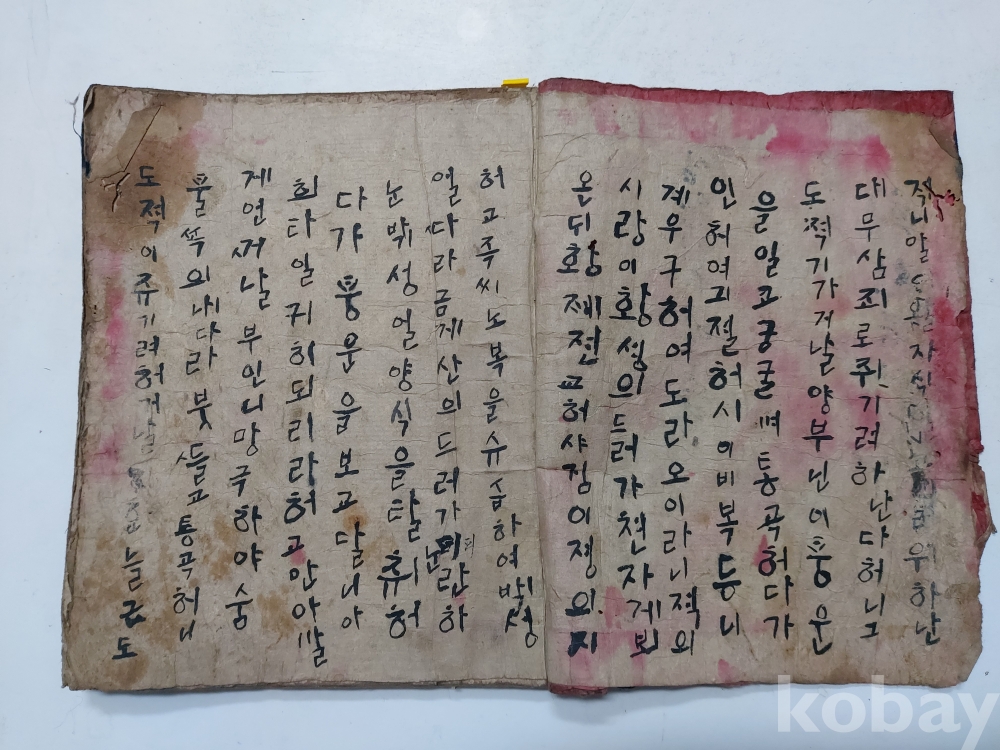 적니말 자식 위하난
대무삼죄로쥭기려하난다허니그
도적기가거날양부닌이풍운
을일고궁굴며통곡허다가
인허여긔졀허시이비복등니
계우구허여도라오이라니적외
시랑이황셩의드러가쳔자게뵈
온듸황졔젼교허샤짐이졍외지
허고족씨노복을슈습하여백셩
열다라금계산의드러가 란하
눈백셩얼양식을탈취허
다가풍운을보고달녀아
희타일귀히되리라허고안아말
게언져날부인니망극하야숨
풀쏙의내다라붓들고통곡허니
도젹이쥬기려허거날 늘근도
kobay